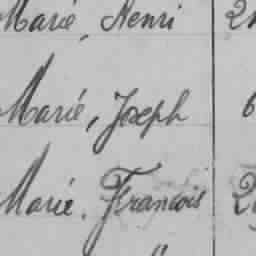 Marié, Henri 2
Marié, Joseph 6
Marié. Francois 2